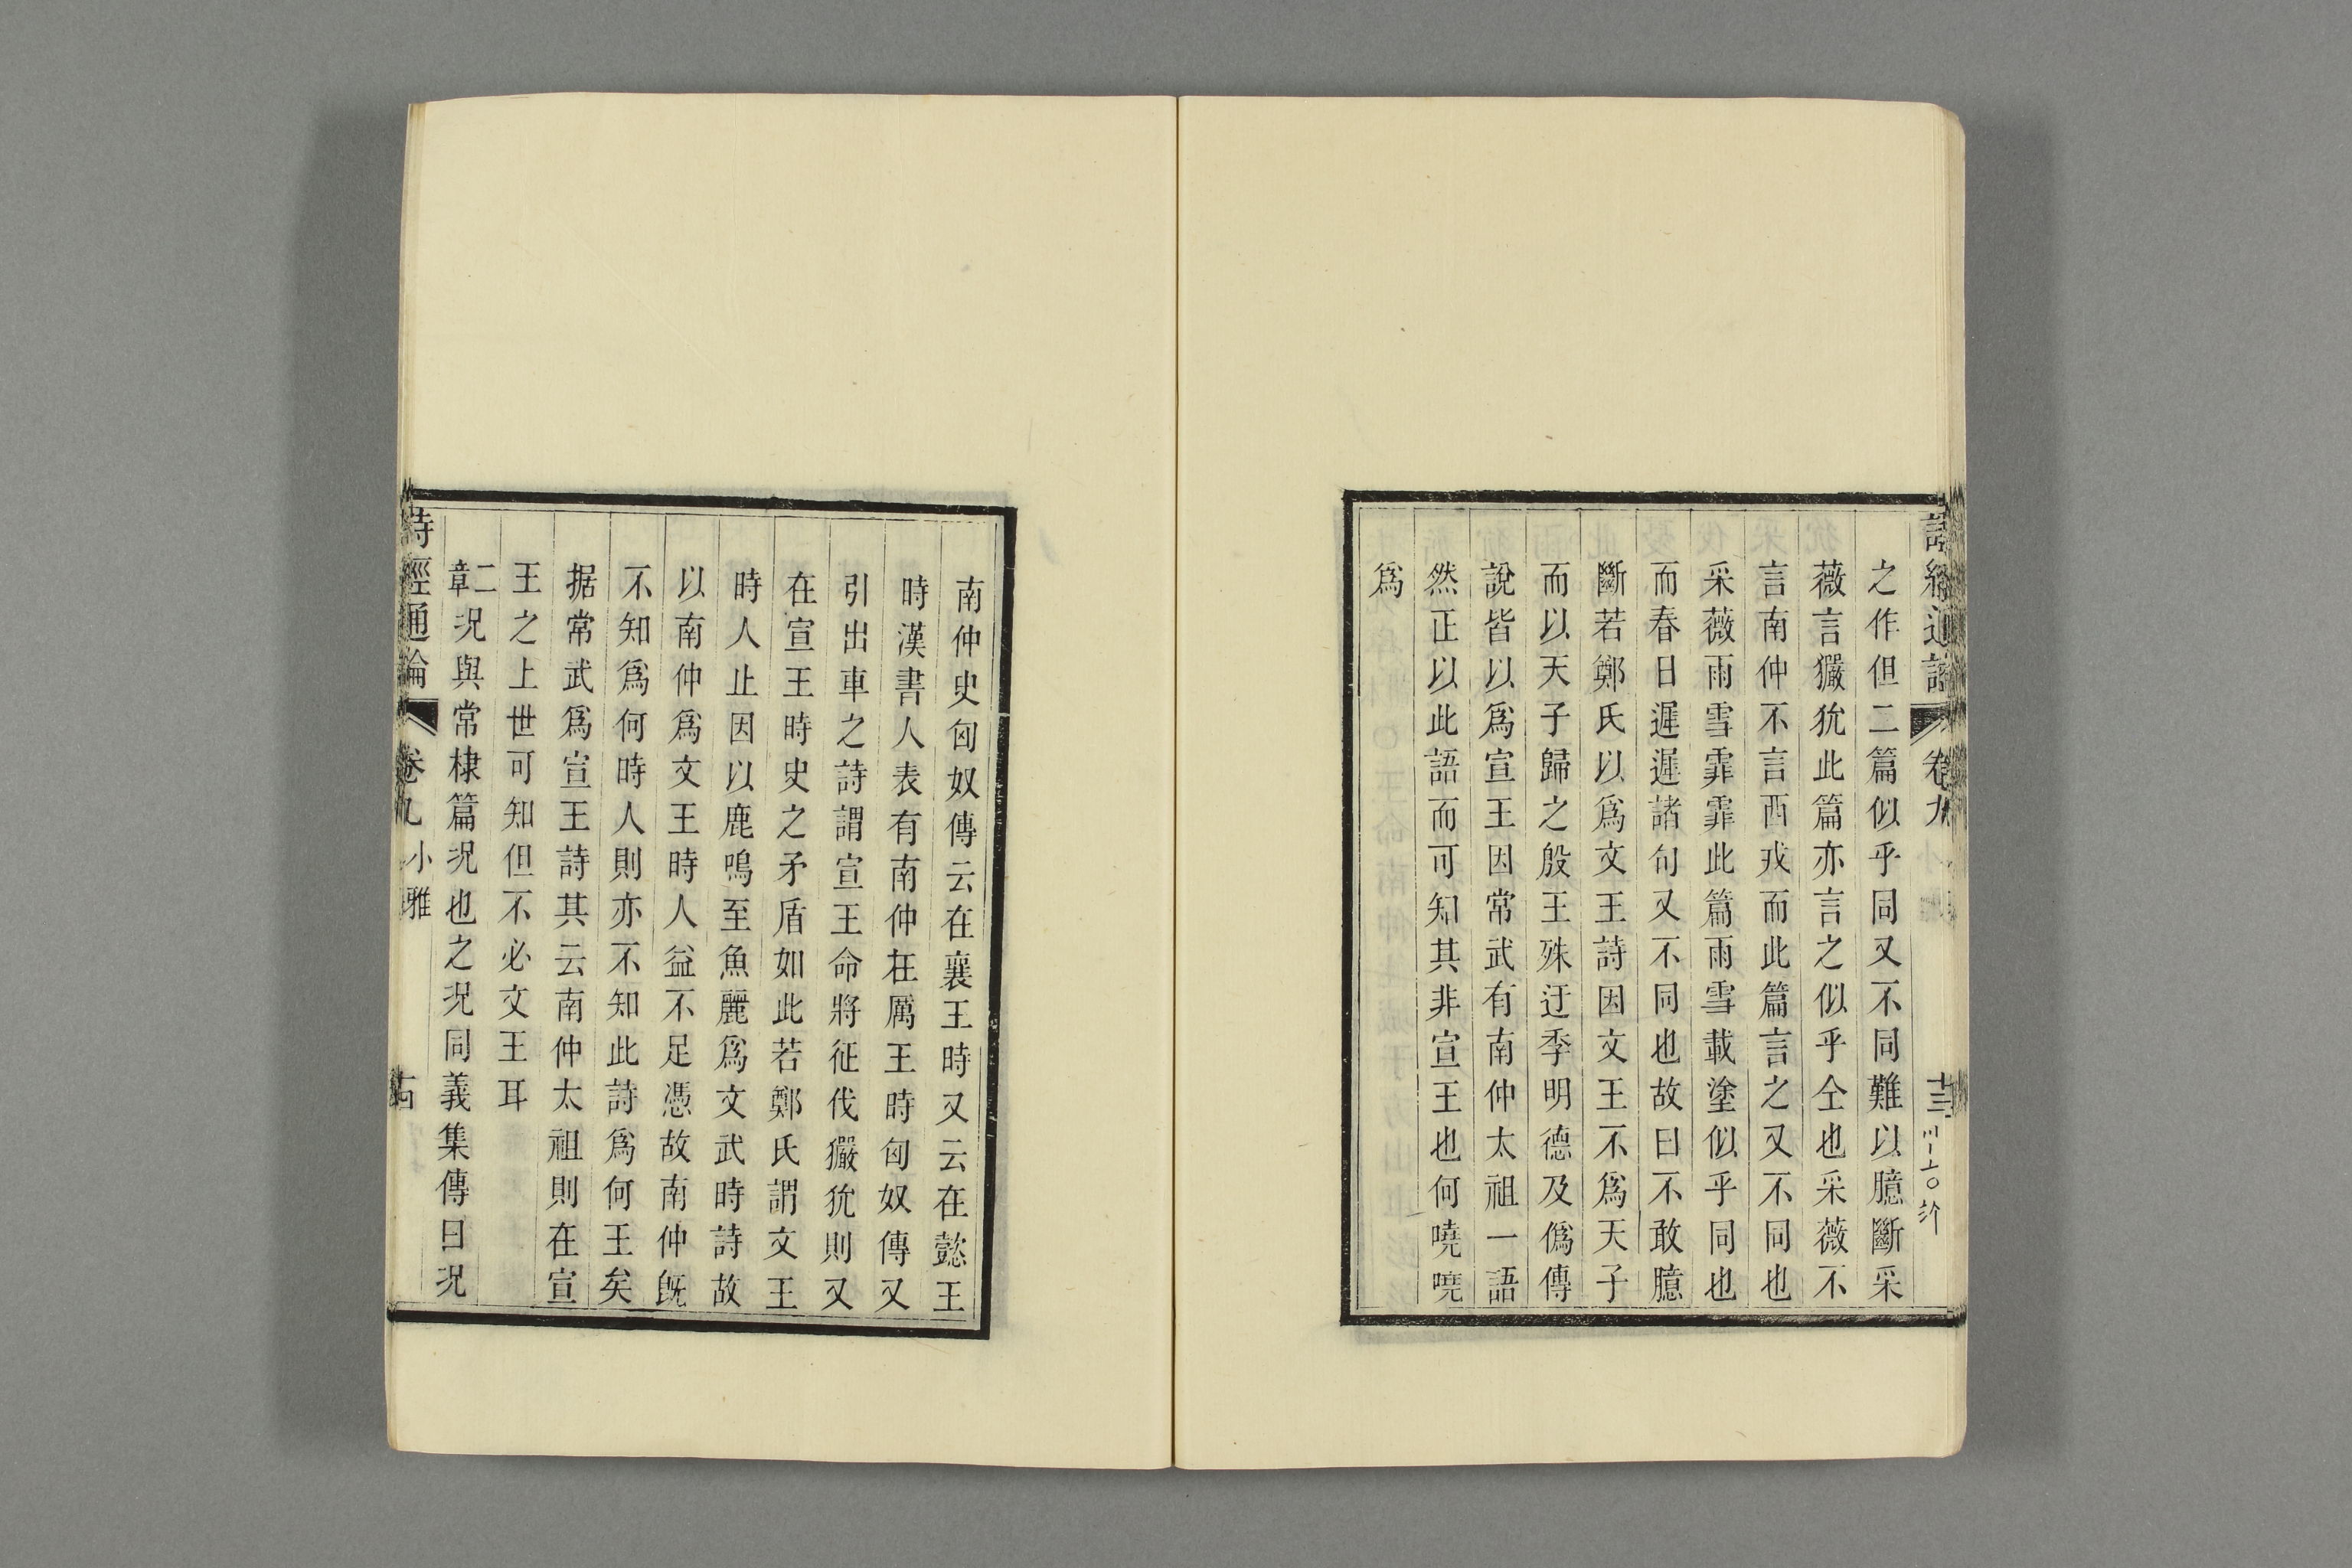 卷九
十三
之作但二篇似乎同又不同難以臆斷采
薇言玁狁此篇亦言之似乎仝也采薇不
言南仲不言西戎而此篇言之又不同也
采薇雨雪霏霏此篇雨雪載塗似乎同也
而春日遲遲諸句又不同也故曰不敢臆
斷若鄭氏以爲文王詩因文王不爲天子
而以天子歸之殷王殊迂季明德及僞傳
說皆以爲宣王因常武有南仲太祖一語
然正以此語而可知其非宣王也何嘵嘵
爲
南仲史匈奴傳云在襄王時又云在懿王
時漢書人表有南仲在厲王時匈奴傳又
引出車之詩謂宣王命將征伐玁狁則又
在宣王時史之矛盾如此若鄭氏謂文王
時人止因以鹿鳴至魚麗爲文武時詩故
以南仲爲文王時人益不足憑故南仲旣
不知爲何時人則亦不知此詩爲何王矣
据常武爲宣王詩其云南仲太祖則在宣
王之上世可知但不必文王耳
二章況與常棣篇況也之況同義集傳曰況
詩經通論 卷九 小雅